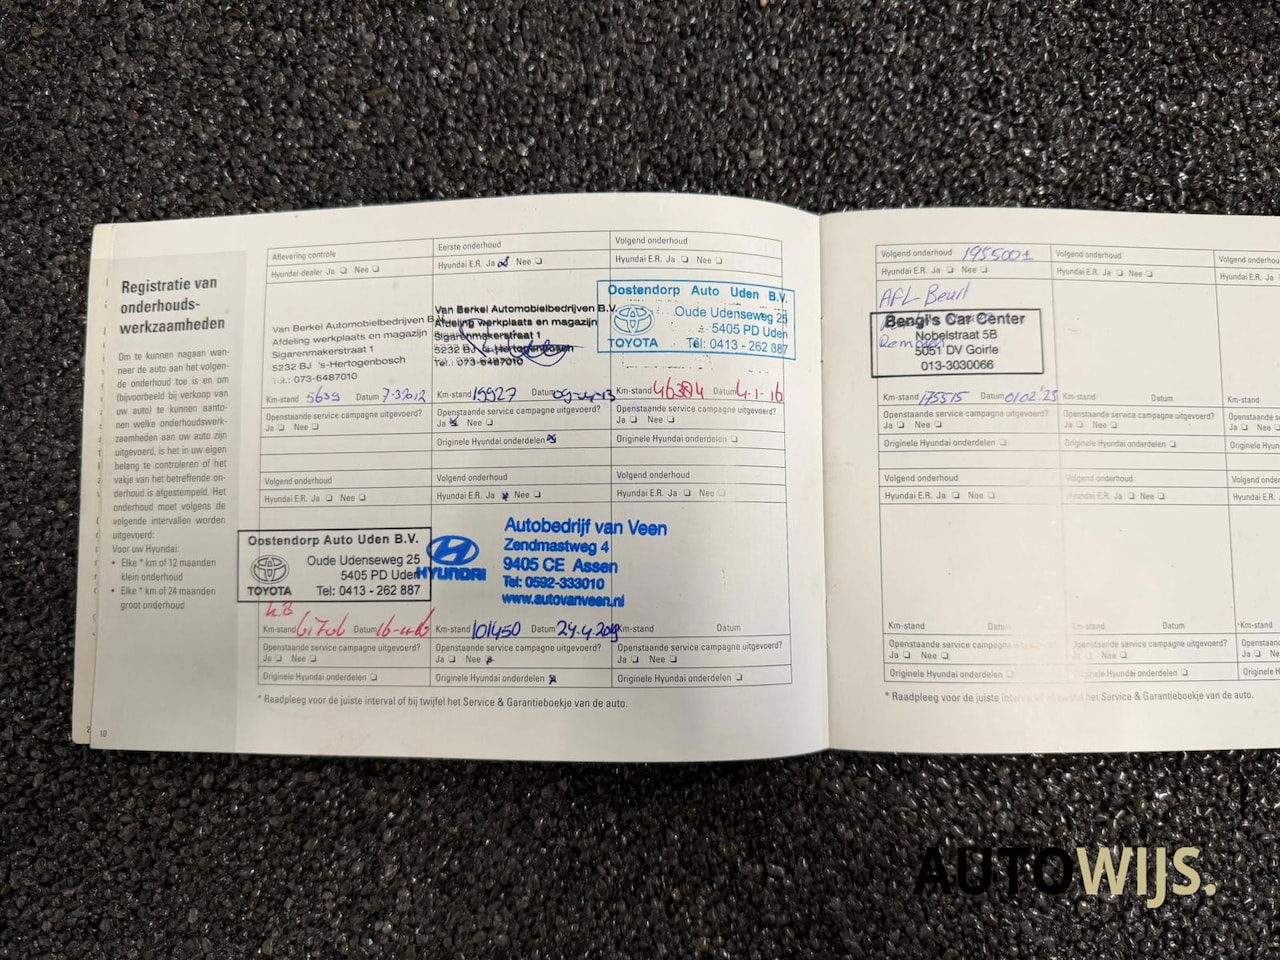 Registratie van
onderhouds-
werkzaamheden
Om te kunnen nagaan wan-
neer de auto aan het volgen-
de onderhoud toe is en om
(bijvoorbeeld bij verkoop van
uw auto) te kunnen aanto-
nen welke onderhoudswerk-
zaamheden aan uw auto zijn
uitgevoerd, is het in uw eigen
belang te controleren of het
vakje van het betreffende on-
derhoud is afgestempeld. Het
onderhoud moet volgens de
volgende intervallen worden
uitgevoerd:
Voor uw Hyundai:
• Elke * km of 12 maanden
klein onderhoud
• Elke * km of 24 maanden
groot onderhoud
10
Aflevering controle
Hyundai-dealer Ja ❏ Nee ❏
Van Berkel Automobielbedrijven B.V.
Afdeling werkplaats en magazijn
Sigarenmakerstraat 1
5232 BJ 's-Hertogenbosch
Tel.: 073-6487010
Km-stand 5639 Datum
Openstaande service campagne uitgevoerd?
Ja ❏ Nee ❏
Eerste onderhoud
Hyundai E.R. Ja Nee ❏
Van Berkel Automobielbedrijven B.V.
Afdeling werkplaats en magazijn
Sigarenmakerstraat 1
5232 BJ 's-Hertogenbosch
Tel.: 073-6487010
Km-stand 15927 Datum
Openstaande service campagne uitgevoerd?
Ja Nee ❏
Originele Hyundai onderdelen
Volgend onderhoud
Hyundai E.R. Ja ❏ Nee ❏
Oostendorp Auto Uden B.V.
Oude Udenseweg 25
5405 PD Uden
TOYOTA Tel: 0413 - 262 887
Km-stand 46384 Datum 4-1-16
Openstaande service campagne uitgevoerd?
Ja ❏ Nee ❏
Originele Hyundai onderdelen ❏
Volgend onderhoud
Hyundai E.R. Ja ❏ Nee ❏
Oostendorp Auto Uden B.V.
Oude Udenseweg 25
5405 PD Uden
TOYOTA Tel: 0413 - 262 887
Km-stand 61706 Datum
Openstaande service campagne uitgevoerd?
Ja ❏ Nee ❏
Originele Hyundai onderdelen ❏
Volgend onderhoud
Hyundai E.R. Ja Nee ❏
HYUNDAI
Autobedrijf van Veen
Zendmastweg 4
9405 CE Assen
Tel: 0592-333010
www.autovanveen.nl
Km-stand 101450 Datum 24.4.2019
Openstaande service campagne uitgevoerd?
Ja ❏ Nee
Originele Hyundai onderdelen
Volgend onderhoud
Hyundai E.R. Ja ❏ Nee ❏
Km-stand Datum
Openstaande service campagne uitgevoerd?
Ja ❏ Nee ❏
Originele Hyundai onderdelen ❏
* Raadpleeg voor de juiste interval of bij twijfel het Service & Garantieboekje van de auto.
Volgend onderhoud 195500
Hyundai E.R. Ja ❏ Nee ❏
AFL Beurt
Bengi's Car Center
Nobelstraat 5B
5051 DV Goirle
013-3030066
Km-stand 175515 Datum 01/02'25
Openstaande service campagne uitgevoerd?
Ja ❏ Nee ❏
Originele Hyundai onderdelen ❏
Volgend onderhoud
Hyundai E.R. Ja ❏ Nee ❏
Km-stand Datum
Openstaande service campagne uitgevoerd?
Ja ❏ Nee ❏
Originele Hyundai onderdelen ❏
Volgend onderhoud
Hyundai E.R. Ja
Km-stand
Openstaande
Ja ❏ Nee ❏
Originele Hyundai
Volgend onderhoud
Hyundai E.R. Ja ❏ Nee ❏
Km-stand Datum
Openstaande service campagne uitgevoerd?
Ja ❏ Nee ❏
Originele Hyundai onderdelen ❏
Volgend onderhoud
Hyundai E.R. Ja ❏ Nee ❏
Km-stand Datum
Openstaande service campagne uitgevoerd?
Ja ❏ Nee ❏
Originele Hyundai onderdelen ❏
Volgend
Hyundai E.R.
Km-stand
Openstaande
Ja ❏ Nee
Originele
* Raadpleeg voor de juiste interval of bij twijfel het Service & Garantieboekje van de auto.
AUTOWIJS.